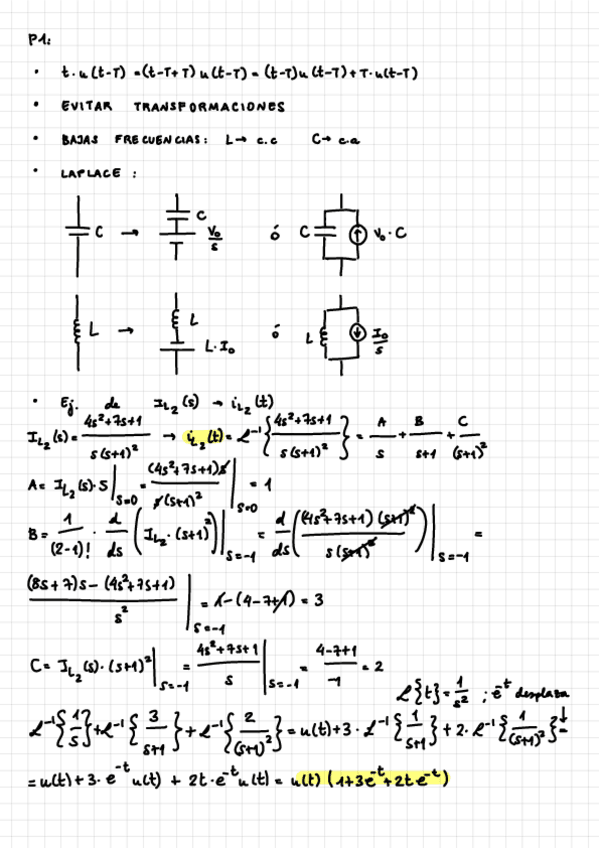 P1:
• t·u(t-T) = (t-T+T)u(t-T) = (t-T)u(t-T)+T·u(t-T)
• EVITAR TRANSFORMACIONES
• BAJAS FRECUENCIAS: L→ c.c C→ c.a
• LAPLACE :
C → C V₀/s ó C V₀·C
L → L L·I₀ ó L I₀/s
• Ej. de I_L₂(s) → i_L₂(t)
I_L₂(s) = (4s²+7s+1)/(s(s+1)²) → i_L₂(t) = ℒ⁻¹{(4s²+7s+1)/(s(s+1)²)} = A/s + B/(s+1) + C/(s+1)²
A = I_L₂(s)·s|s=0 = (4s²+7s+1)s/(s(s+1)²)|s=0 = 1
B = 1/(2-1)! · d/ds (I_L₂·(s+1)²)|s=-1 = d/ds ((4s²+7s+1)(s+1)²/(s(s+1)²))|s=-1 =
((8s+7)s-(4s²+7s+1))/s²|s=-1 = 1-(4-7+1) = 3
C = I_L₂(s)·(s+1)²|s=-1 = (4s²+7s+1)/s|s=-1 = (4-7+1)/-1 = 2
ℒ{t} = 1/s² ; e⁻ᵗ desplaza
ℒ⁻¹{1/s}+ℒ⁻¹{3/(s+1)}+ℒ⁻¹{2/(s+1)²} = u(t)+3·ℒ⁻¹{1/(s+1)}+2·ℒ⁻¹{1/(s+1)²} =
= u(t)+3·e⁻ᵗu(t) + 2t·e⁻ᵗu(t) = u(t)(1+3e⁻ᵗ+2te⁻ᵗ)